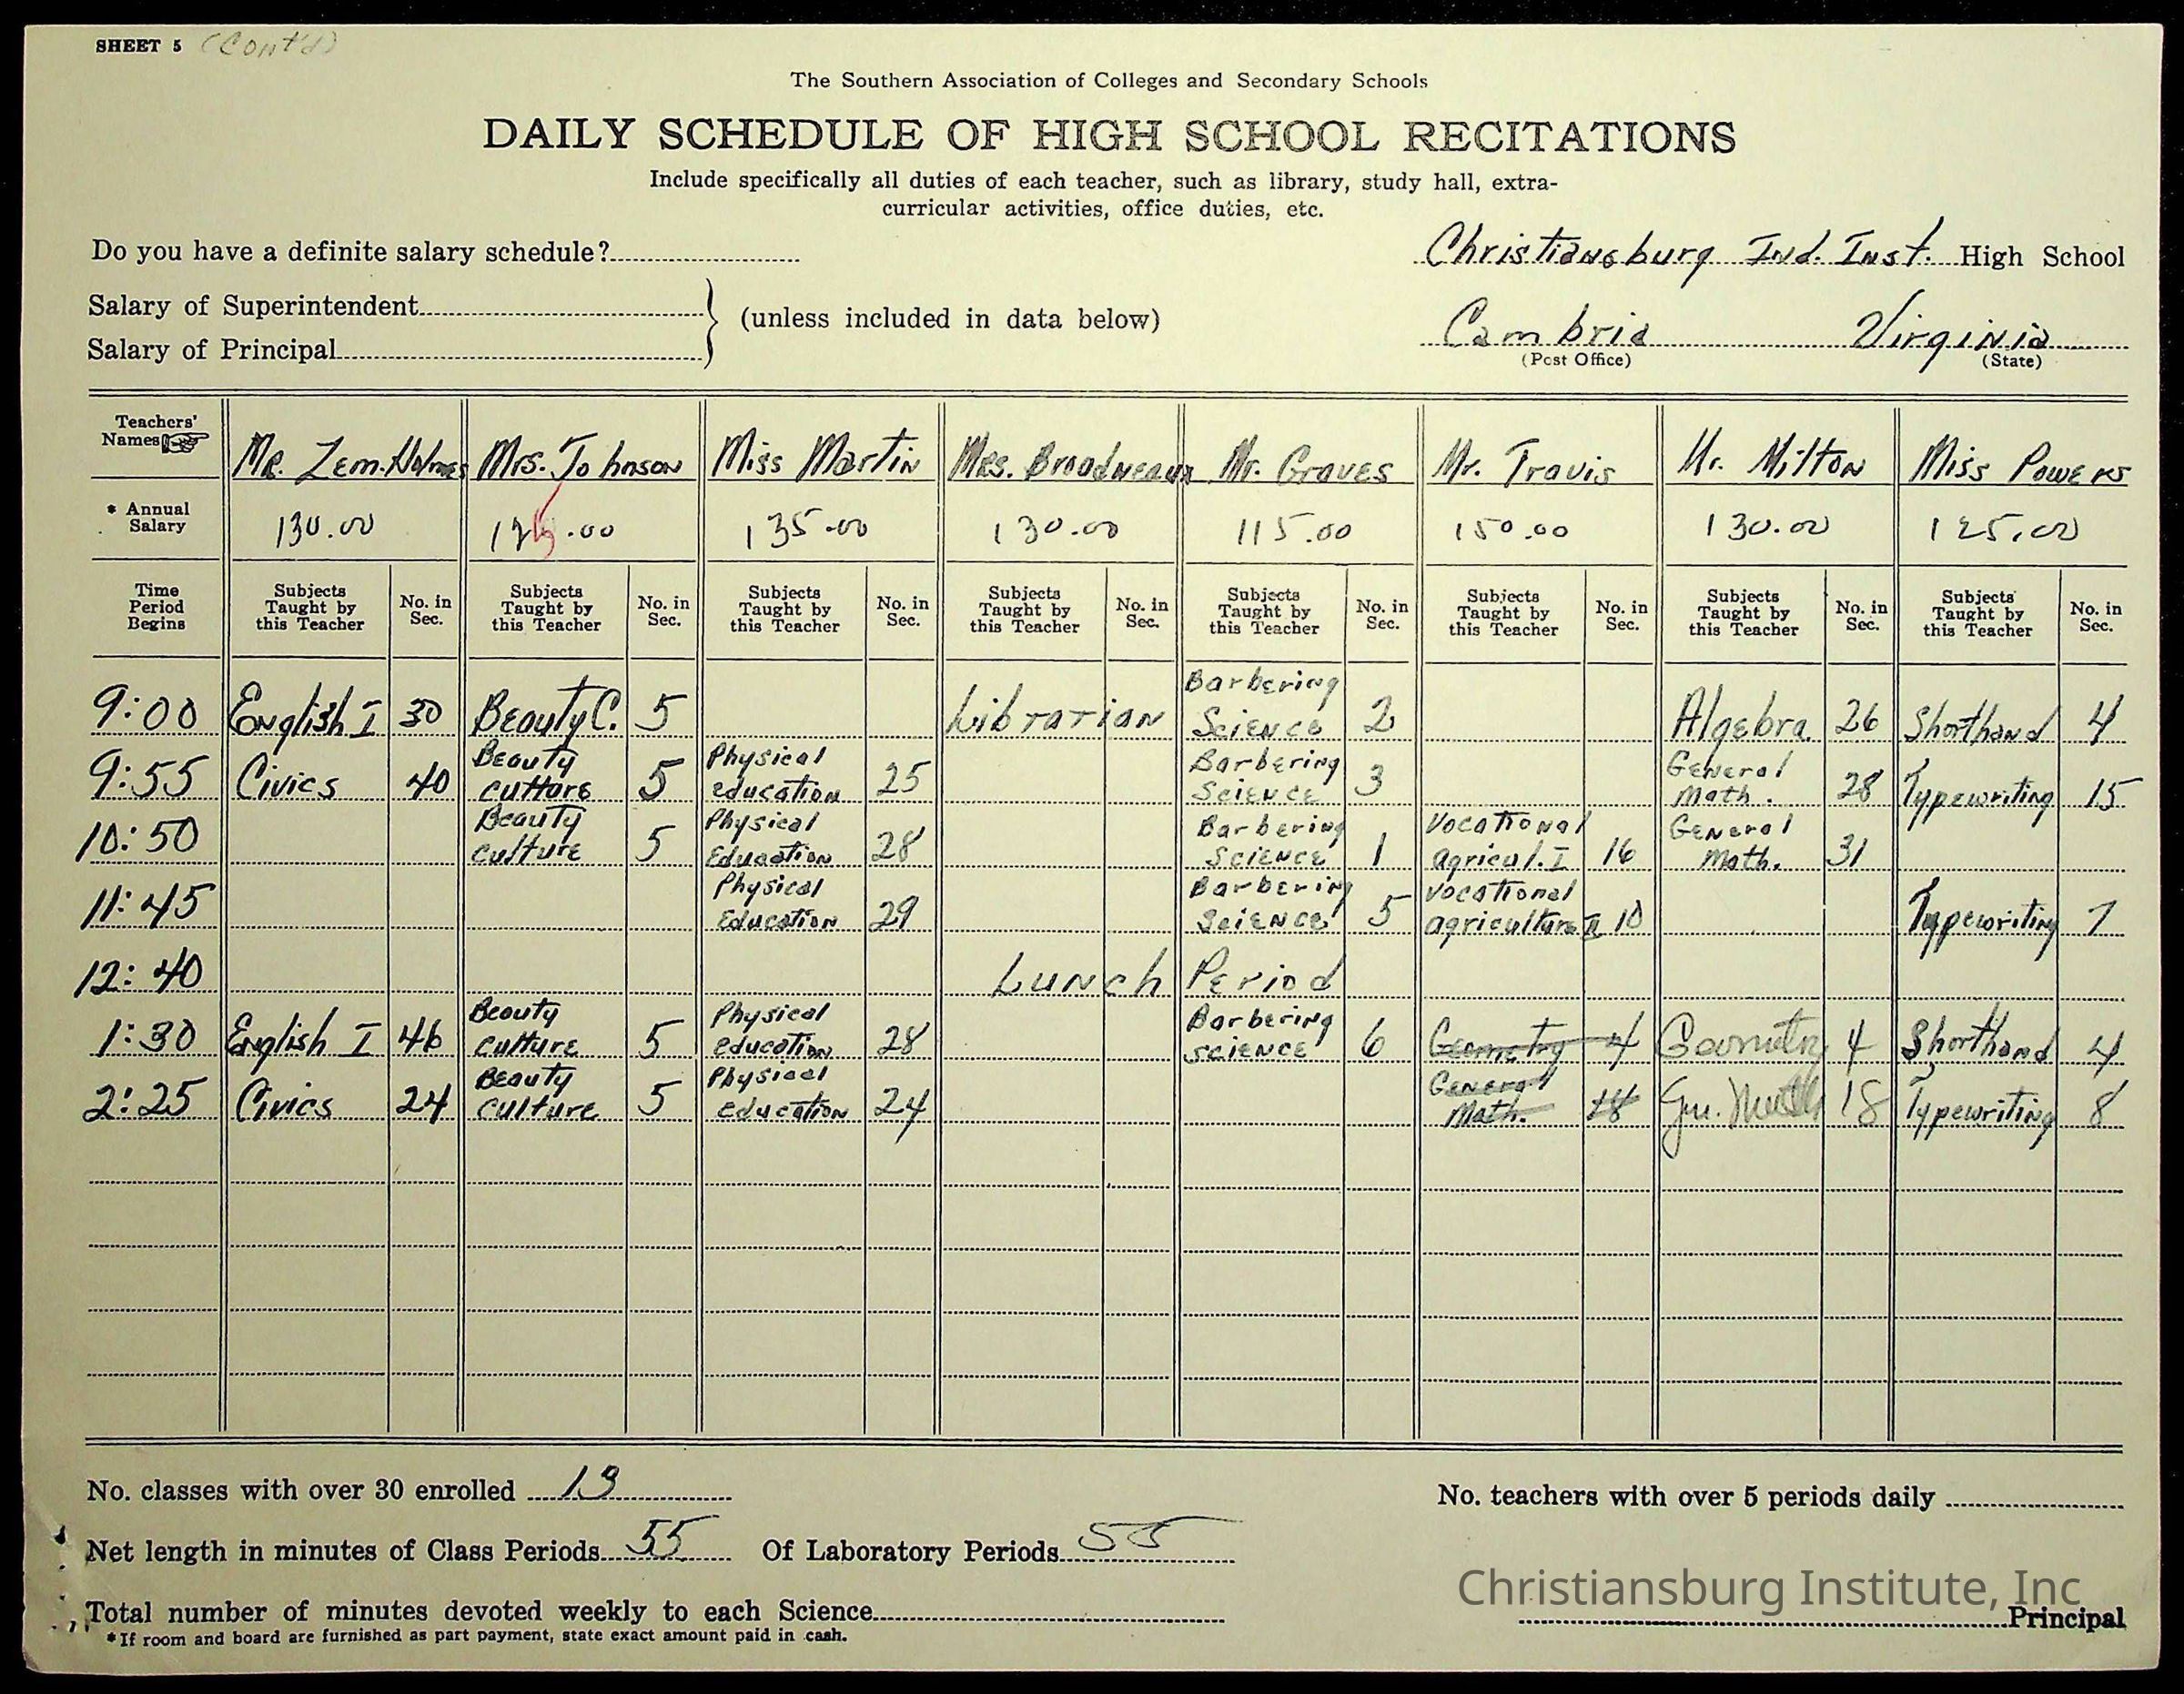 SHEET 5 (Cont'd)
The Southern Association of Colleges and Secondary Schools
DAILY SCHEDULE OF HIGH SCHOOL RECITATIONS
Include specifically all duties of each teacher, such as library, study hall, extra-
curricular activities, office duties, etc.
Do you have a definite salary schedule?
Christiansburg Ind. Inst. High School
Salary of Superintendent
(unless included in data below)
Cambria Virginia
Salary of Principal
(Post Office) (State)
Teachers' Names Mr. Zem. Holmes Mrs. Johnson Miss Martin Mrs. Broadneaux Mr. Graves Mr. Travis Mr. Milton Miss Powers
* Annual Salary 130.00 125.00 135.00 130.00 115.00 150.00 130.00 125.00
Time Period Begins Subjects Taught by this Teacher No. in Sec. Subjects Taught by this Teacher No. in Sec. Subjects Taught by this Teacher No. in Sec. Subjects Taught by this Teacher No. in Sec. Subjects Taught by this Teacher No. in Sec. Subjects Taught by this Teacher No. in Sec. Subjects Taught by this Teacher No. in Sec. Subjects Taught by this Teacher No. in Sec.
9:00 English I 30 Beauty C. 5 Librarian Barbering Science 2 Algebra 26 Shorthand 4
9:55 Civics 40 Beauty cutture 5 Physical education 25 Barbering Science 3 General Math. 28 Typewriting 15
10:50 Beauty culture 5 Physical Education 28 Barbering Science 1 Vocational agricul. I 16 General Math. 31
11:45 Physical Education 29 Barbering Science 5 Vocational agriculture II 10 Typewriting 7
12:40 Lunch Period
1:30 English I 46 Beauty culture 5 Physical education 28 Barbering science 6 Geometry 4 Geometry 4 Shorthand 4
2:25 Civics 24 Beauty culture 5 Physical Education 24 General Math. 18 Gen. Math 18 Typewriting 8
No. classes with over 30 enrolled 13
No. teachers with over 5 periods daily
Net length in minutes of Class Periods 55 Of Laboratory Periods 55
Christiansburg Institute, Inc
Total number of minutes devoted weekly to each Science
Principal
*If room and board are furnished as part payment, state exact amount paid in cash.